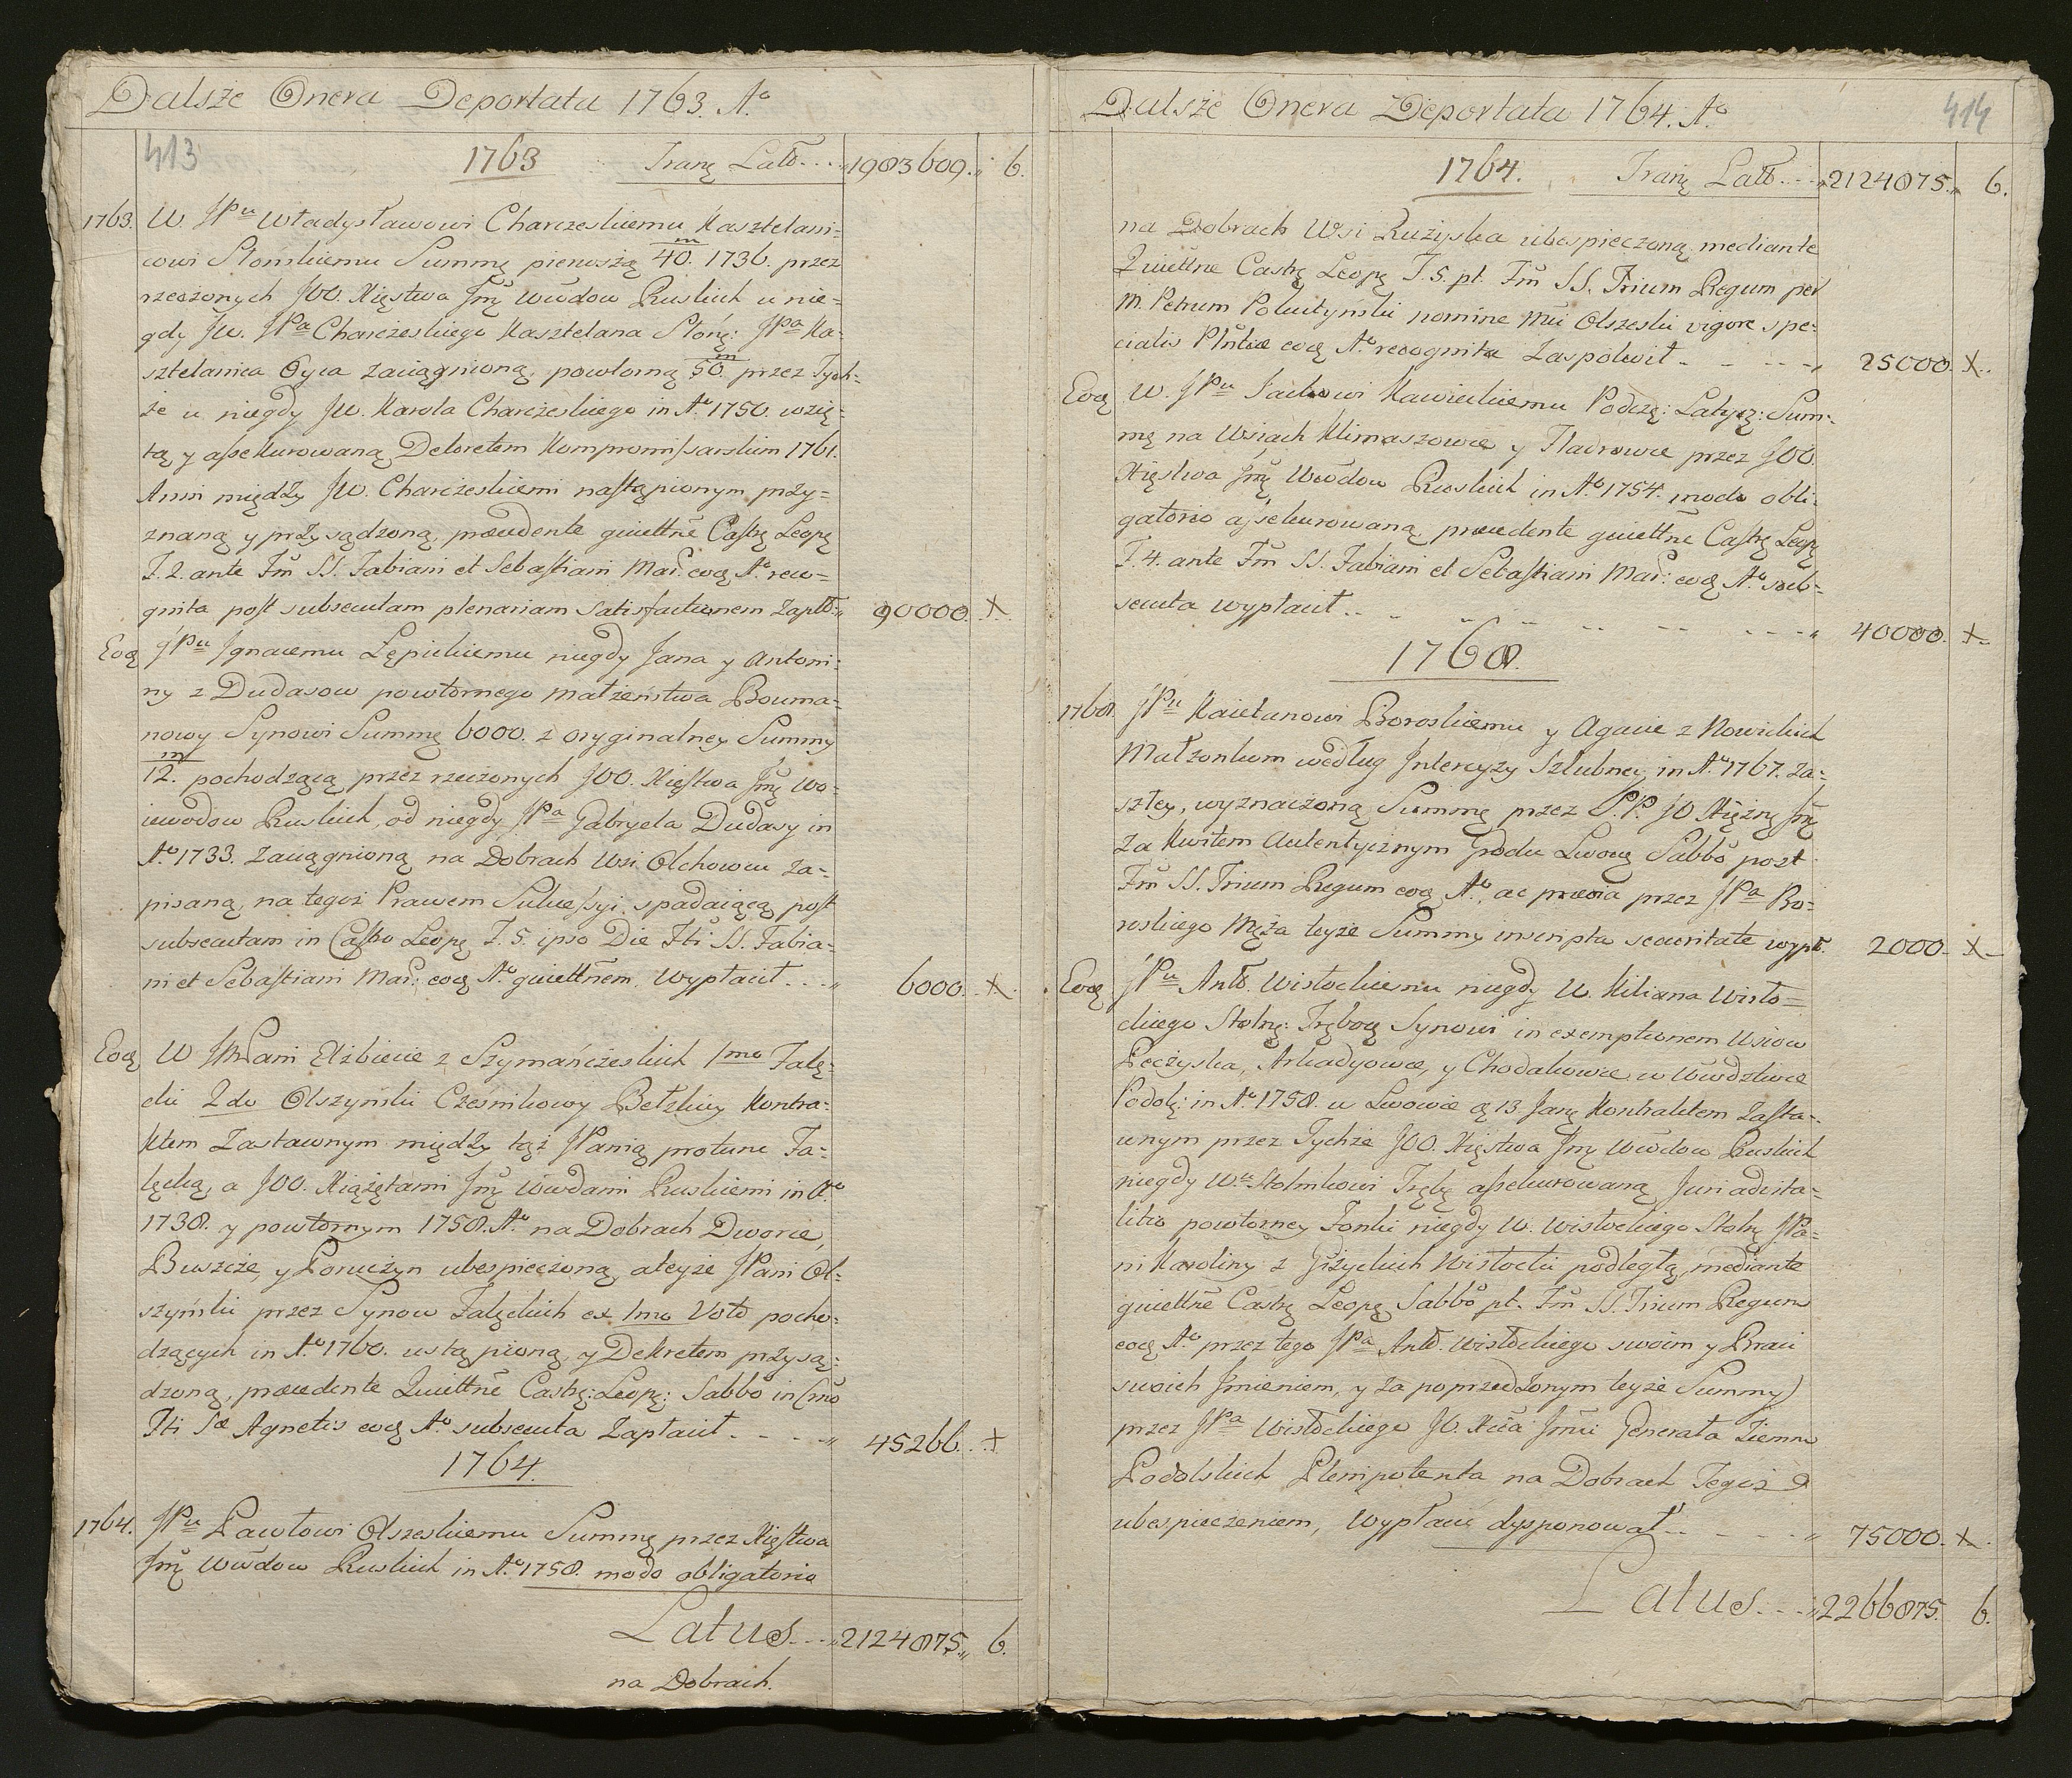 Dalsze Onera Deportata 1763. Ao
413 1763 Tranę Latō.... „1983609.„ 6.
1763. W. JPu Władysławowi Charczeskiemu Kasztelani=
cowi Słońskiemu Summę pierwszą 40.m 1736. przez
rzeczonych JOO. Xięstwa Jmę Wwdow Ruskich u nie=
gdy JW. JPa Charczeskiego Kasztelana Słonę: JPa Ka=
sztelanica Oyca zaciągnioną, powtorną 50.m przez Tych=
że u niegdy JW. Karola Charczeskiego in Ao 1750. wzię=
tą y assekurowaną Dekretem Kompromissarskim 1761.
Anni między JW. Charczeskiemi nastąpionym przy=
znaną y przysądzoną, præcedente quiettñe Castrę Leopę
F. 2. ante Fm̃ SS. Fabiani et Sebastiani Mar: eoq Ao reco=
gnita post subsecutam plenariam Satisfactionem zapłō: „ 90000. X.
Eoq JPu Ignacemu Łępickiemu niegdy Jana y Antoni=
ny z Dudasow powtornego małżeństwa Bouma=
nowy Synowi Summę 6000. z oryginalney Summy
12.m pochodzącą przez rzeczonych JOO. Xięstwa Jmę Wo=
iewodow Ruskich, od niegdy JPa Gabryela Dudasy in
Ao 1733. zaciągnioną na Dobrach Wsi Olchowcu za=
pisaną, na tegoż Prawem Sukcessyi spadaiącą post
subsecutam in Castro Leopę F. 5. ipso Die Fti SS. Fabia=
ni et Sebastiani Mar: eoq Ao quiettñem, wypłacił ...„ 6000. X.
Eoq W JMPani Elżbiecie z Szymańczeskich 1mo Falę=
cki 2do Olszyński Cześnikowy Bełzkiey Kontra=
ktem Zastawnym między tąż JPanią protunc Fa=
lęcką, a JOO. Xiążętami Jmę Wwdami Ruskiemi in Ao
1738. y powtornym 1758. Ao na Dobrach Dworce,
Buszcze, y Poruczyn ubespieczoną, a teyże JPani Ol=
szyński przez Synow Falęckich ex 1mo Voto pocho=
dzących in Ao 1760. ustąpioną, y Dekretem przysą=
dzoną, præcedente Quiettñe Castrę: Leopę: Sabbō in Crño
Fti Sæ Agnetis eoq Ao subsecuta Zapłacił. - - -„ 45266. X
1764.
1764. JPu Pawłowi Olszeskiemu Summę przez Xięstwa
Jmę Wwdow Ruskich in Ao 1758. modo obligatorio
Latus...„2124875„ 6.
na Dobrach.
Dalsze Onera Deportata 1764. Ao 414
1764. Tranę Latō...„2124875.„ 6.
na Dobrach Wsi Ruzyska ubespieczoną, mediante
Quiettñe Castrę Leopę F. 5. pt. Fm̃ SS. Trium Regum per
M. Petrum Pokutyński nomine Mci Olszeski vigore spe=
cialis Plñtiæ eoq Ao recognitæ Zaspokoił - - - -„ 25000. X.
Eoq W. JPu Jackowi Kawieckiemu Podczę: Latycz: Sum=
mę na Wsiach Klimaszowce y Fladrowce przez JOO.
Xięstwa Jmę Wwdow Ruskich in Ao 1754. modo obli=
gatorio assekurowaną, præcedente quiettñe Castrę Leopę
F. 4. ante Fm̃ SS. Fabiani et Sebastiani Mar: eoq Ao sub=
secuta wypłacił.. - - - - - - -„ 40000. X.
1768.
1768. JPu Kaietanowi Boroskiemu y Agacie z Nowickich
Małżonkom według Intercyzy Szlubney, in Ao 1767. za=
szłey, wyznaczoną Summę przez S.P. JO Xiężnę Jmę
za kwitem Autentycznym Grodu Lwowę Sabbō post
Fm̃ SS. Trium Regum eoq Ao, ac prævia przez JPa Bo=
roskiego Męża teyże Summy inscripta securitate wypł. 2000. X
Eoq JPu Antō. Wisłockiemu niegdy W. Kiliana Wisło=
ckiego Stolnę: Trębow Synowi in exemptionem Wsiow
Peczyska, Arkadyowce, y Chodakowce w Wwdztwie
Podolę: in Ao 1758. w Lwowie d. 13. Janę Kontraktem zasta=
wnym przez Tychże JOO. Xięstwa Jmę Wwdow Ruskich
niegdy Wu Stolnikowi Trębę assekurowaną Juri advita=
litio powtorney Żonki niegdy W. Wisłockiego Stolnę JPa=
ni Karoliny z Giżyckich Wisłocki podległą, mediante
quiettñe Castrę Leopę Sabbō pt. Fm̃ SS. Trium Regum
eoq Ao przez tego JPa Antō. Wisłockiego swoim y Braci
swoich Imieniem, y za poprzedzonym teyże Summy
przez JPa Wisłockiego JO. Xcia Jmci Generała Ziemn
Podolskich Plenipotenta na Dobrach Tegoż
ubespieczeniem, wypłacić dysponował. - - -„ 75000. X.
Latus...„2266875. 6.